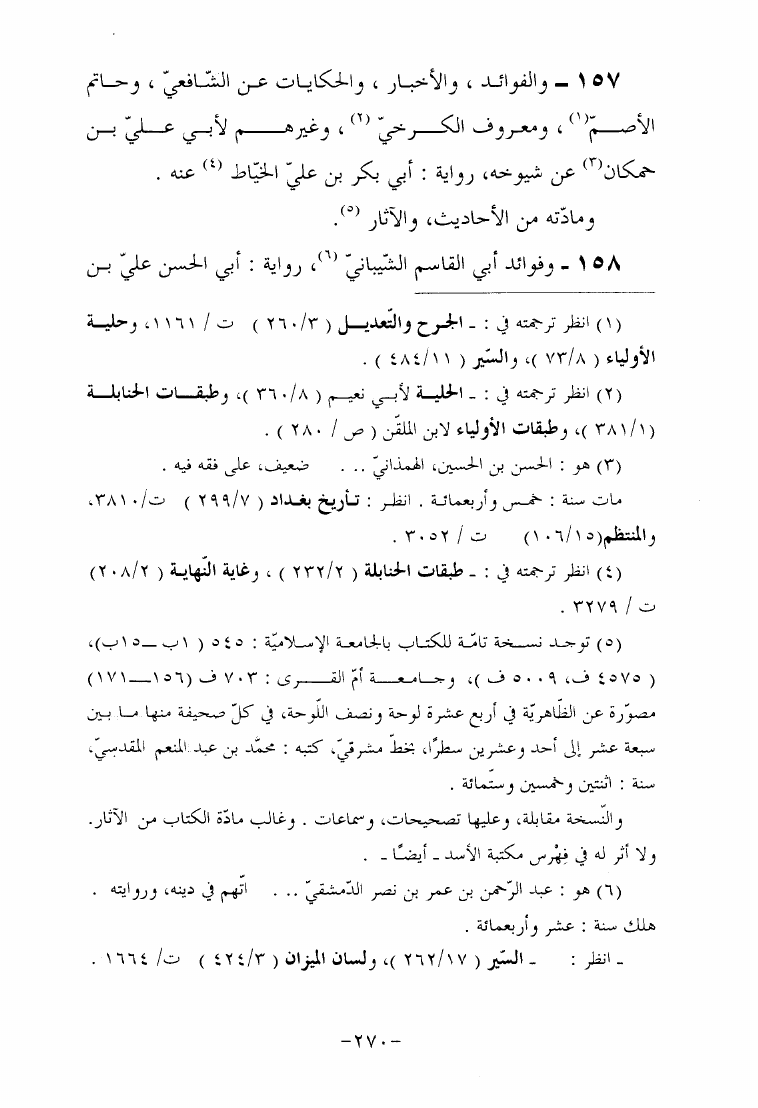 ١٥٧ - والفوائد ، والأخبار ، والحكايات عن الشّافعيّ ، وحاتم
الأصـــمّ(١) ، ومعروف الكرخيّ(٢) ، وغيرهـــم لأبـــي عـــليّ بـــن
حمكان(٣) عن شيوخه، رواية : أبي بكر بن عليّ الخيّاط (٤) عنه .
ومادّته من الأحاديث، والآثار (٥).
١٥٨ - وفوائد أبي القاسم الشّيبانيّ (٦)، رواية : أبي الحسن عليّ بـن
(١) انظر ترجمته في : - الجرح والتّعديل ( ٢٦٠/٣ ) ت / ١١٦١، وحلية
الأولياء ( ٧٣/٨ )، والسّير ( ٤٨٤/١١ ) .
(٢) انظر ترجمته في : - الحلية لأبي نعيم ( ٣٦٠/٨ )، وطبقات الحنابلة
(٣٨١/١ )، وطبقات الأولياء لابن الملقّن ( ص / ٢٨٠ ) .
(٣) هو : الحسن بن الحسين، الهمذانيّ ... ضعيف، على فقه فيه .
مات سنة : خمس وأربعمائة . انظر : تأريخ بغداد ( ٢٩٩/٧ ) ت/٣٨١٠،
والمنتظم(١٠٦/١٥) ت / ٣٠٥٢ .
(٤) انظر ترجمته في : - طبقات الحنابلة ( ٢٣٢/٢ ) ، وغاية النّهاية ( ٢٠٨/٢)
ت / ٣٢٧٩ .
(٥) توجد نسخة تامّة للكتاب بالجامعة الإسلاميّة : ٥٤٥ ( ١ب —١٥ب)،
( ٤٥٧٥ ف، ٥٠٠٩ ف )، وجامعة أمّ القرى : ٧٠٣ ف (١٥٦—١٧١)
مصوّرة عن الظّاهريّة في أربع عشرة لوحة ونصف اللّوحة، في كلّ صحيفة منها ما بين
سبعة عشر إلى أحد وعشرين سطرًا، بخطّ مشرقيّ، كتبه : محمّد بن عبد المنعم المقدسيّ،
سنة : اثنتين وخمسين وستّمائة .
والنّسخة مقابلة، وعليها تصحيحات، وسماعات . وغالب مادّة الكتاب من الآثار.
ولا أثر له في فِهْرس مكتبة الأسد - أيضًا - .
(٦) هو : عبد الرّحمن بن عمر بن نصر الدّمشقيّ ... اتّهم في دينه، وروايته .
هلك سنة : عشر وأربعمائة .
- انظر : - السّير ( ٢٦٢/١٧ )، ولسان الميزان ( ٤٢٤/٣ ) ت/ ١٦٦٤ .
-٢٧٠-